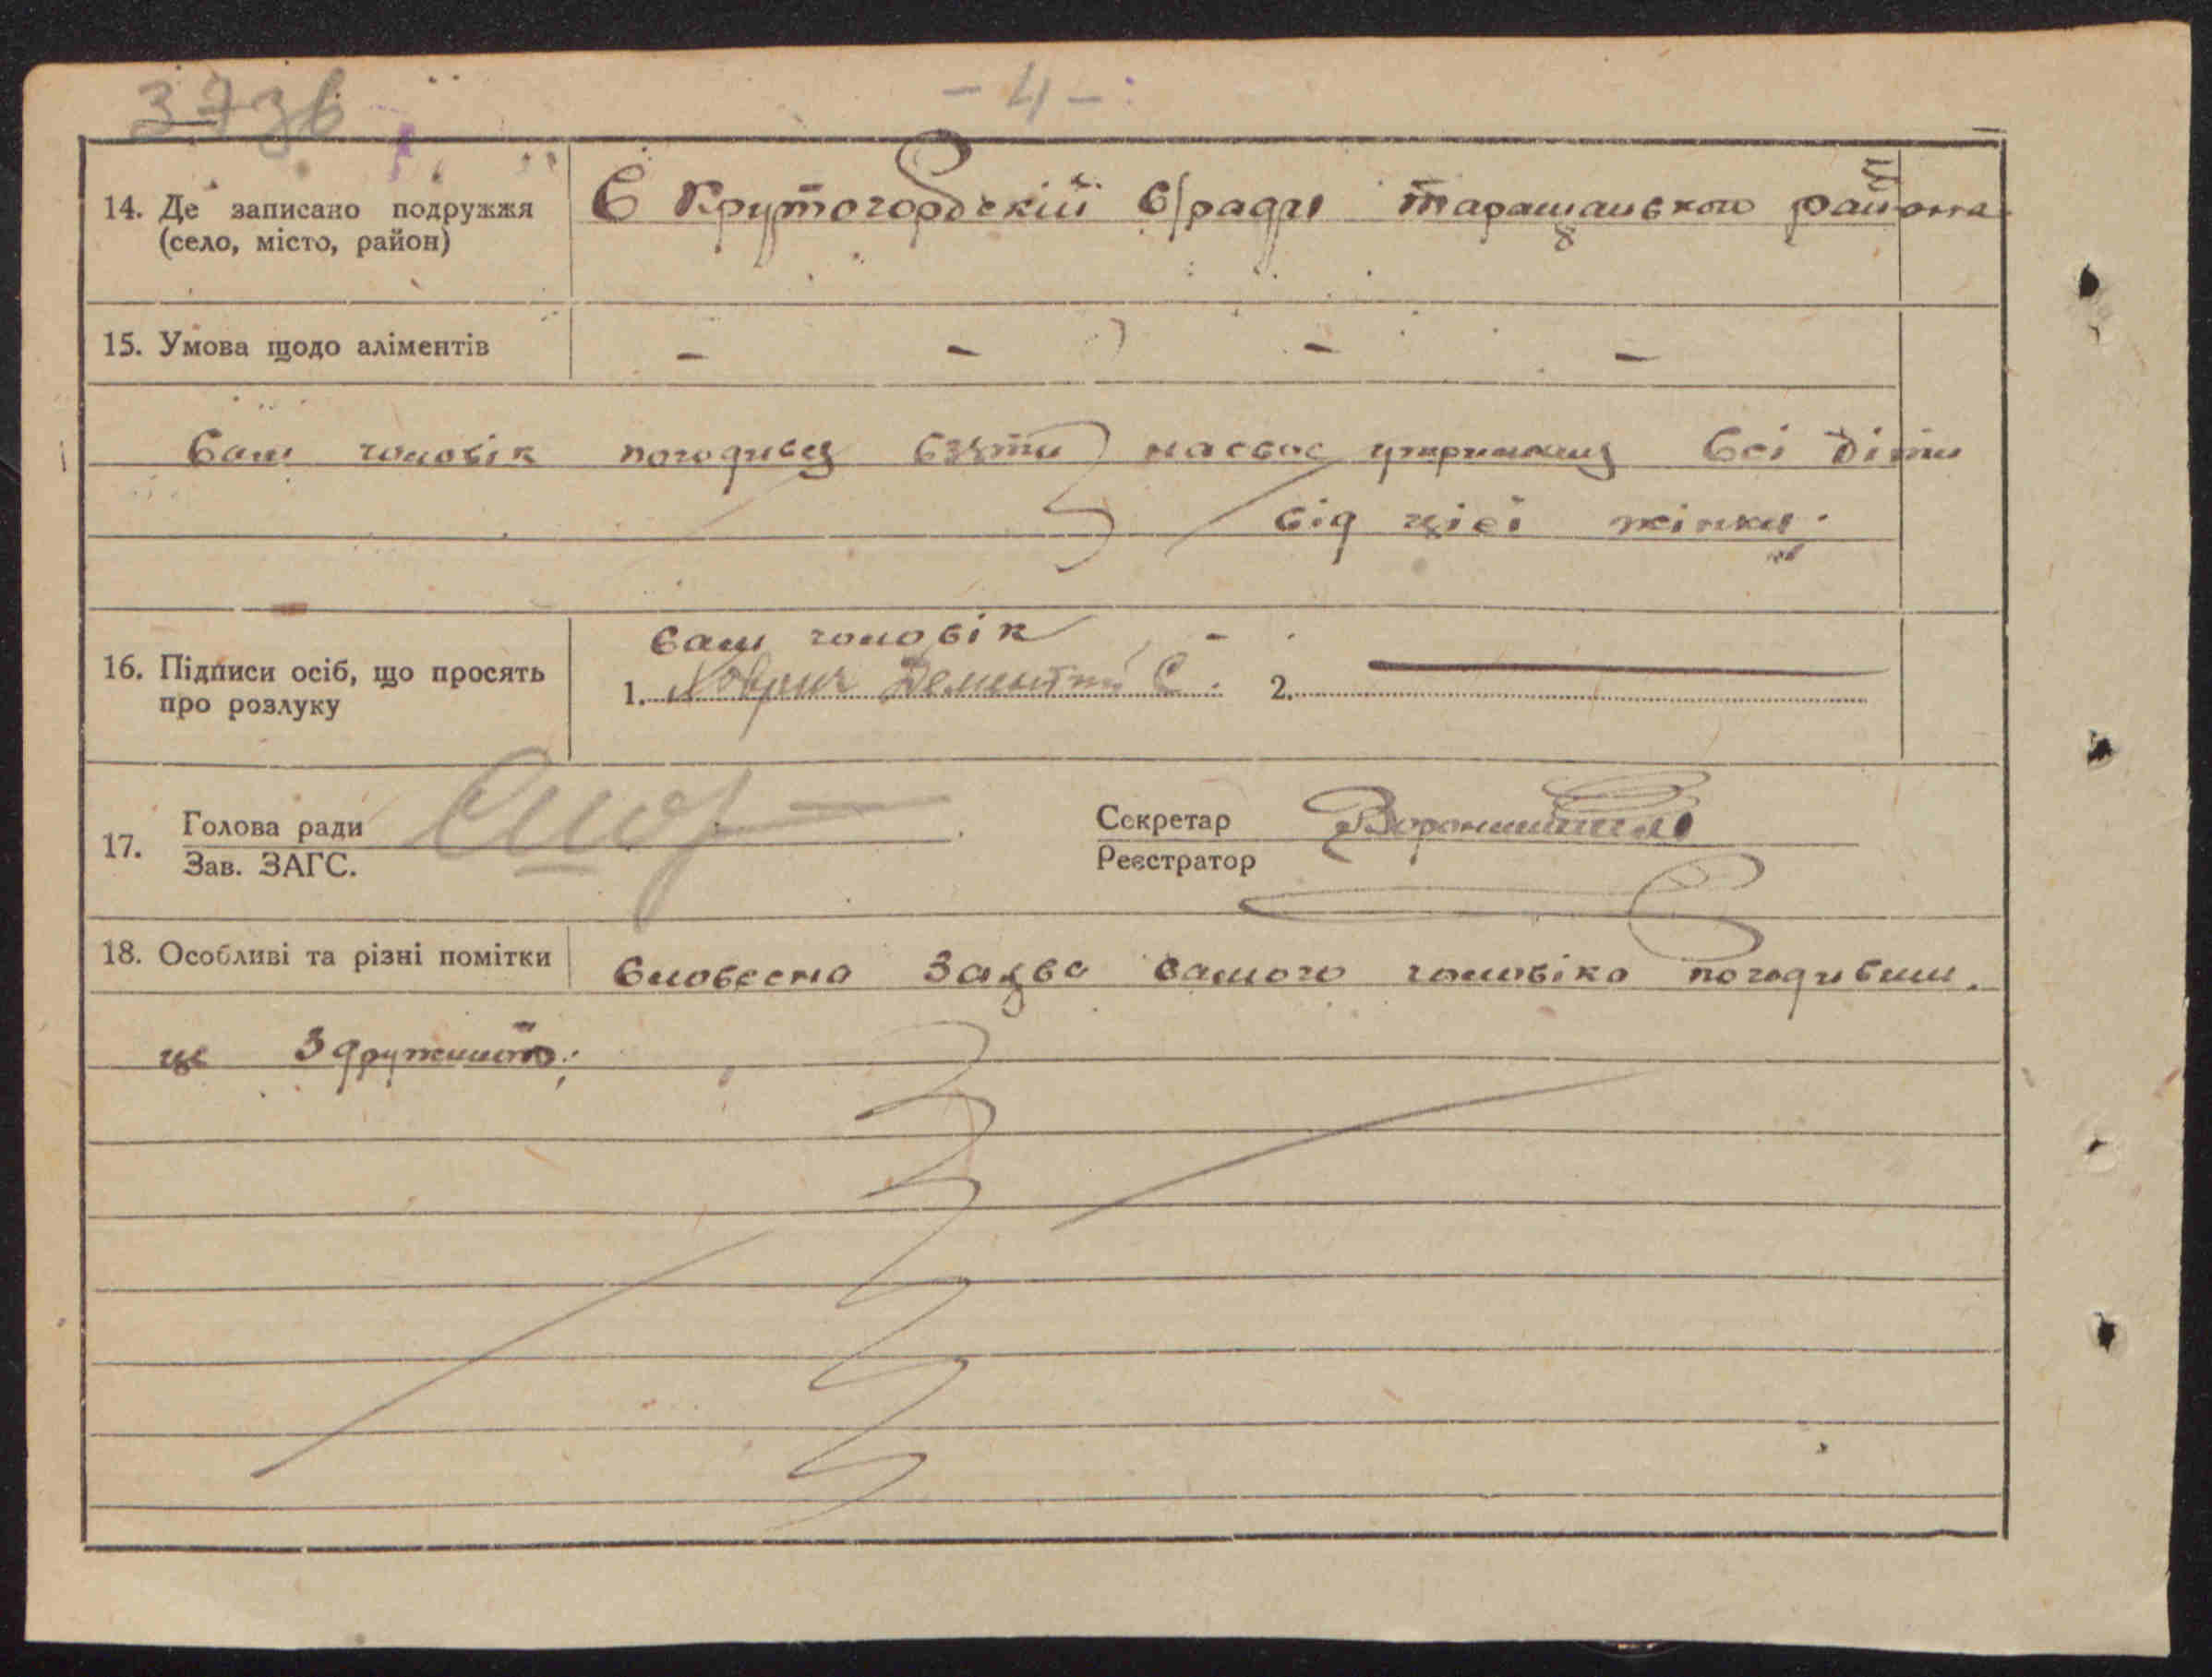 373в
- 4 -
14. Де записано подружжя (село, місто, район)
В Крутогордскій с/раді таращанського района
15. Умова щодо аліментів
- - - -
Сам чоловік погодився взяти насвоє утримання всі діти
від цієї жінки.
16. Підписи осіб, що просять про розлуку
Сам чоловік
1. Дементій С. 2.
17. Голова ради
Зав. ЗАГС.
Секретар
Реєстратор
18. Особливі та різні помітки
Словесна Заява самого чоловіка погодивши
це З дружиною;